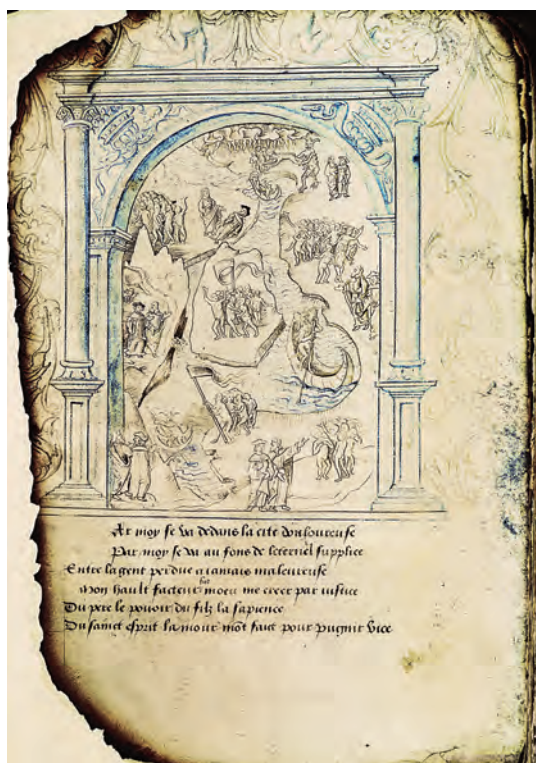 Ar moy se va dedans la cite douloureuse
Par moy se va au fons de leternel supplice
Entre la gent perdue a iamais maleureuse
Mon hault facteur moeu me creer par iustice
Du pere le pouoir du filz la sapience
Du sainct esprit lamour mõt faict pour pugnir vice